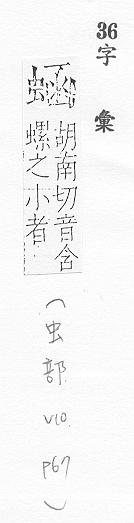 36字彙
蜬
胡南切音含
螺之小者
(虫部 V10. P67)